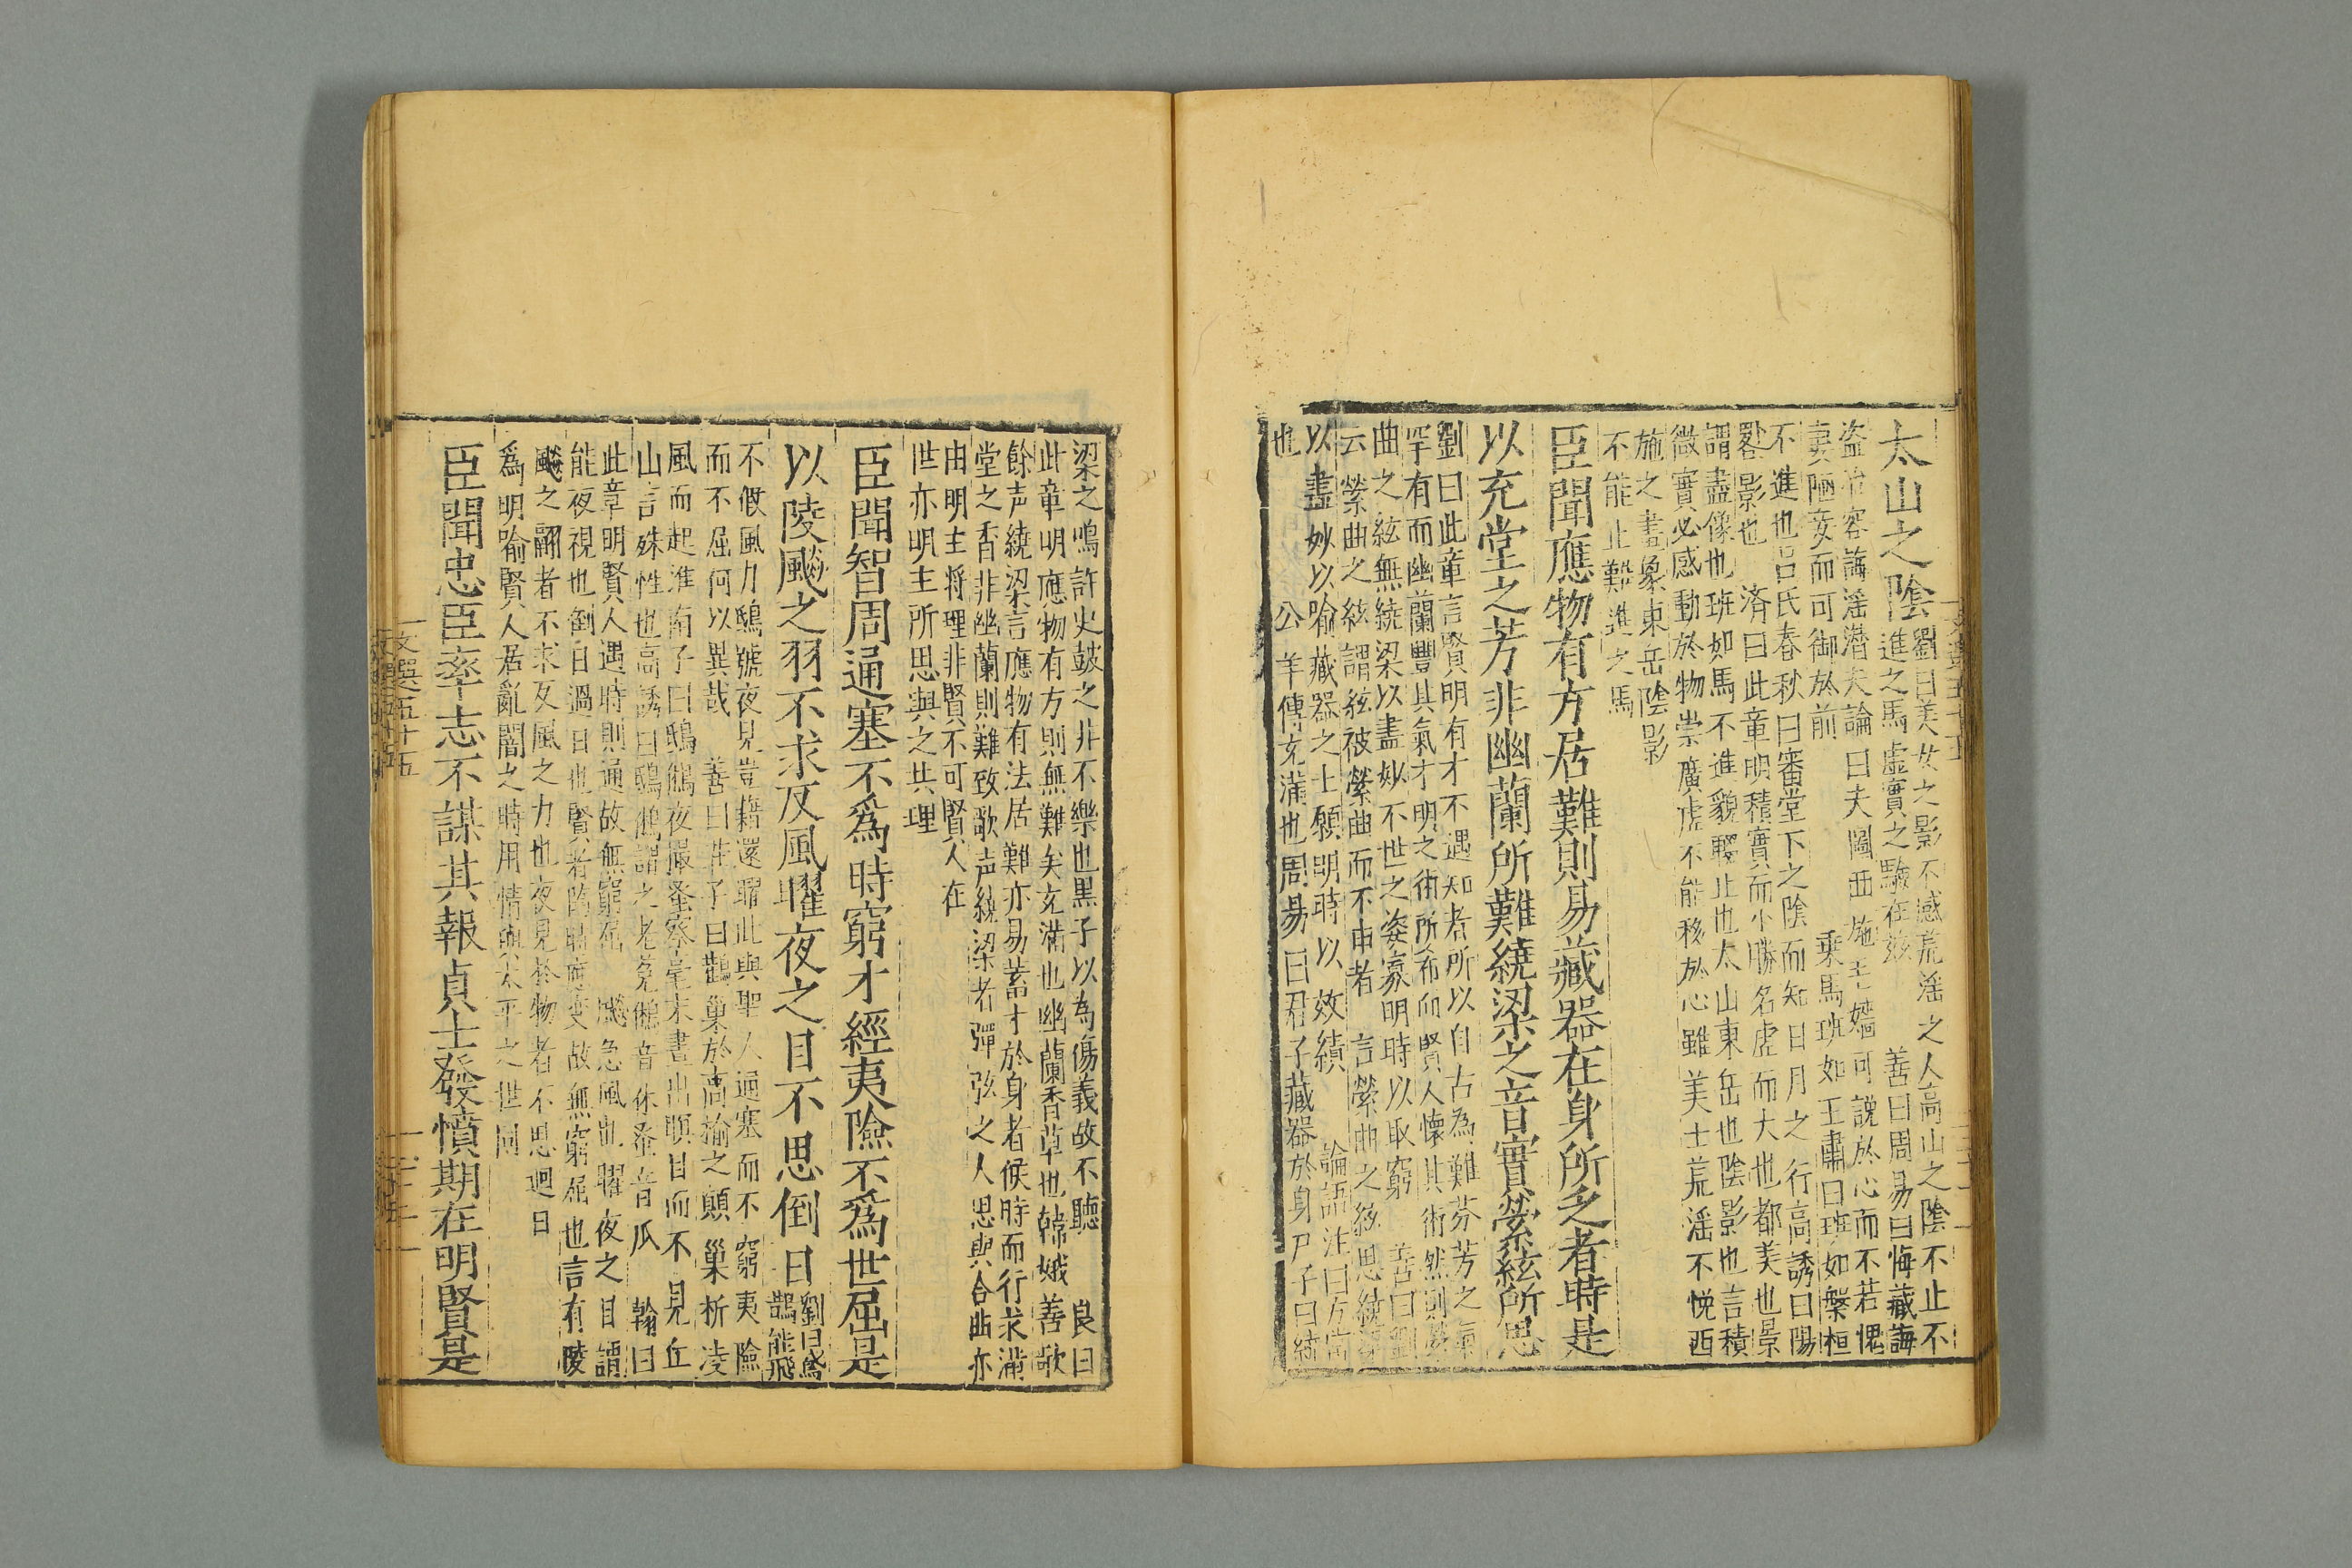 太山之陰劉曰美女之影不感荒淫之人高山之陰不止不
進之馬虛實之驗在茲 善曰周易曰悔藏誨
盗冶容誨淫潜夫論曰夫圖西施王嬙可説於心而不若愧
妻陋妾而可御於前 乗馬班如王肅曰班如槃桓
不進也吕氏春秋曰審堂下之陰而知日月之行高誘曰陽
晷影也 濟曰此章明積實而小勝名虚而大也都美也景
謂盡像也班如馬不進貌輟止也太山東岳也陰影也言積
微實必感動於物崇廣虚不能移於心雖美士荒淫不恱西
施之畫象東岳陰影
不能止難進之馬
臣聞應物有方居難則易藏器在身所乏者時是
以充堂之芳非幽蘭所難繞梁之音實縈絃所思
劉曰此章言賢明有才不遇知者所以自古為難芬芳之氣
罕有而幽蘭豐其氣才明之術所希而賢人懷其術然則
曲之絃無繞梁以盡妙不世之姿寡明時以取窮 善曰劉
云縈曲之絃謂絃被縈曲而不申者 言縈曲之絃思繞梁
以盡妙以喻藏器之士願明時以效績 論語注曰方常
也 公羊傳充滿也周易曰君子藏器於身尸子曰繞
梁之鳴許史鼓之非不樂也墨子以為傷義故不聽 良曰
此章明應物有方則無難矣充滿也幽蘭香草也韓娥善歌
餘声繞梁言應物有法居難亦易蓄才於身者候時而行求滿
堂之香非幽蘭則難致歌声繞梁者彈弦之人思與合曲亦
由明主将理非賢不可賢人在
世亦明主所思與之共理
臣聞智周通塞不為時窮才經夷險不為世屈是
以陵飈之羽不求反風曜夜之目不思倒日劉曰鳶
鵲能飛
不假風力鴟號夜見豈藉還曜此與聖人通塞而不窮夷險
而不屈何以異哉 善曰莊子曰鵲巢於高榆之顛巢折凌
風而起淮南子曰鴟鵂夜撮蚤察毫末晝出瞋目而不見丘
山言殊性也高誘曰鴟鵂謂之老菟鵂音休蚤音瓜 翰曰
此章明賢人遇時則通故無窮屈 飈急風也曜夜之目謂
能夜視也倒日過日也賢者臨時應变故無窮屈也言有陵
飈之翮者不求反風之力也夜見於物者不思迴日
為明喻賢人居亂闇之時用情與太平之世同
臣聞忠臣率志不謀其報貞士發憤期在明賢是
文選五十五